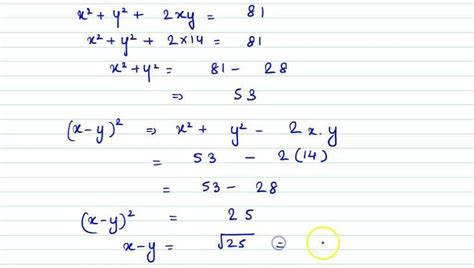 x² + y² + 2xy = 81
x² + y² + 2×14 = 81
x² + y² = 81 - 28
⇒ 53
(x-y)² ⇒ x² + y² - 2x.y
= 53 - 2(14)
= 53 - 28
(x-y)² = 25
x-y = √25 =